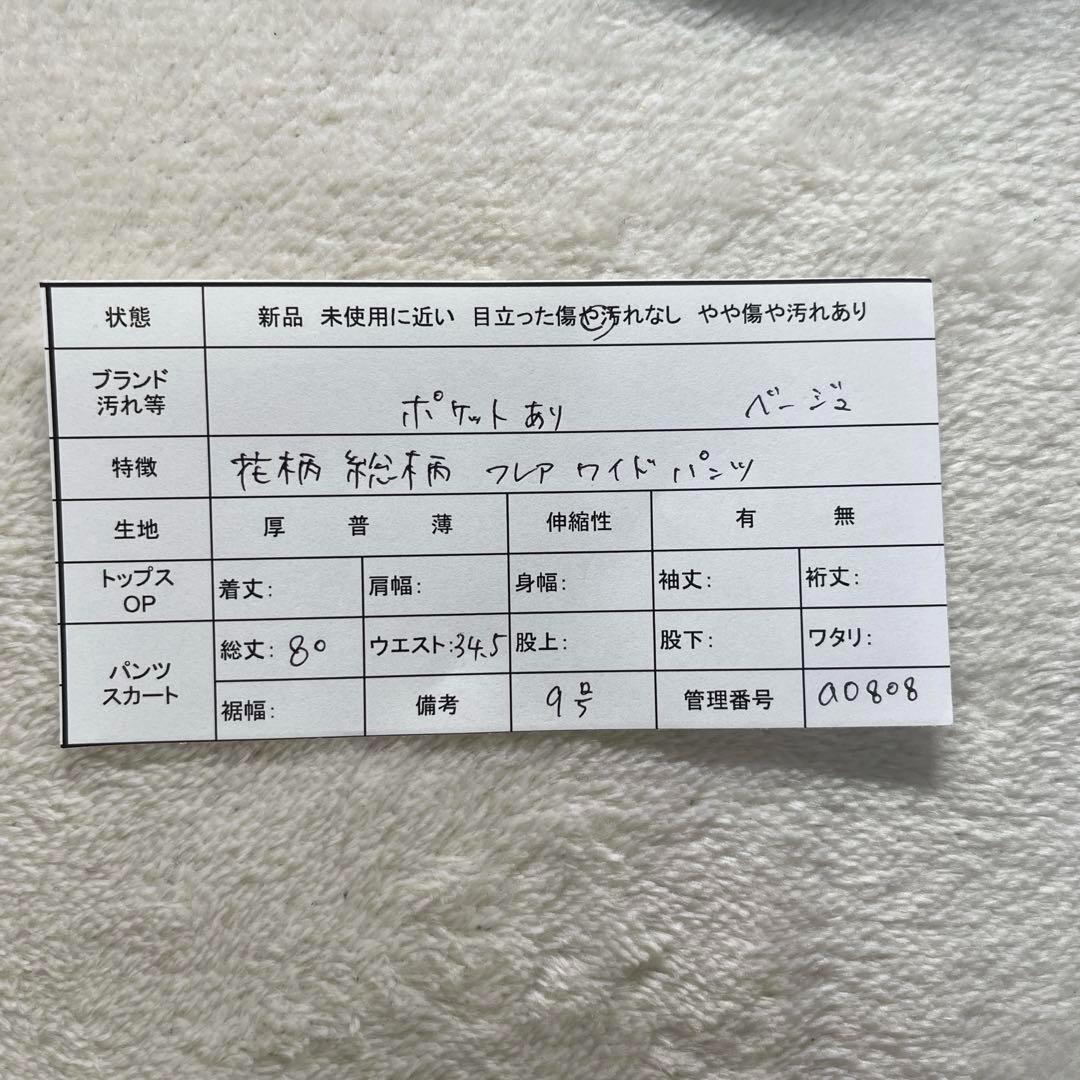 状態 新品 未使用に近い 目立った傷や汚れなし やや傷や汚れあり
ブランド
汚れ等 ポケットあり ベージュ
特徴 花柄 総柄 フレア ワイド パンツ
生地 厚 普 薄 伸縮性 有 無
トップス
OP 着丈: 肩幅: 身幅: 袖丈: 裄丈:
パンツ
スカート 総丈:80 ウエスト:34.5 股上: 股下: ワタリ:
裾幅: 備考 9号 管理番号 a0808